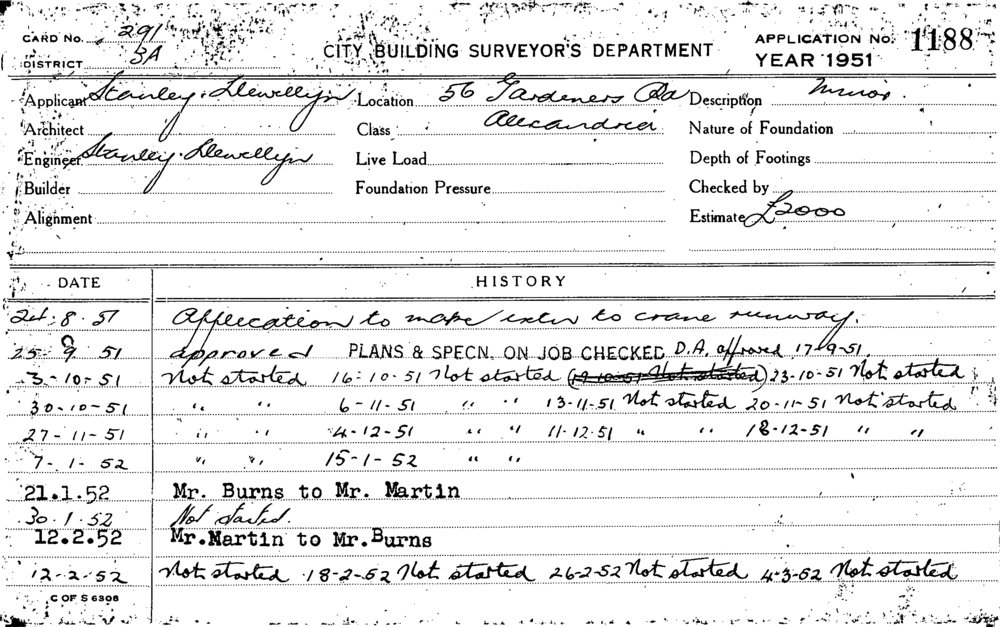 CARD No. 291
DISTRICT 3A
CITY BUILDING SURVEYOR'S DEPARTMENT
APPLICATION No. 1188
YEAR 1951
Applicant Stanley. Llewellyn Location 56 Gardeners Rd Description Minor.
Architect Class Alexandria Nature of Foundation
Engineer Stanley. Llewellyn Live Load Depth of Footings
Builder Foundation Pressure Checked by
Alignment Estimate £2000
DATE HISTORY
24. 8. 51 Application to make exten to crane runway.
25 9 51 approved PLANS & SPECN. ON JOB CHECKED D.A. approved 17-9-51.
3-10-51 Not started 16-10-51 Not started (17-10-51 Not started) 23-10-51 Not started
30-10-51 " " 6-11-51 " " 13-11-51 Not started 20-11-51 Not started
27-11-51 " " 4-12-51 " " 11-12-51 " " 18-12-51 " "
7-1-52 " " 15-1-52 " "
21.1.52 Mr. Burns to Mr. Martin
30.1.52 Not started.
12.2.52 Mr. Martin to Mr. Burns
12-2-52 Not started 18-2-52 Not started 26-2-52 Not started 4-3-52 Not started
C OF S 6306